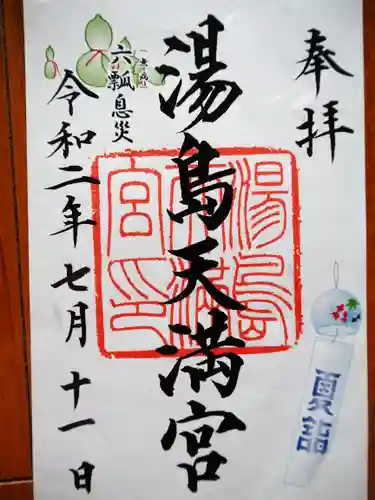 奉拝
湯島天満宮
湯島天満宮印
令和二年七月十一日
六瓢息災